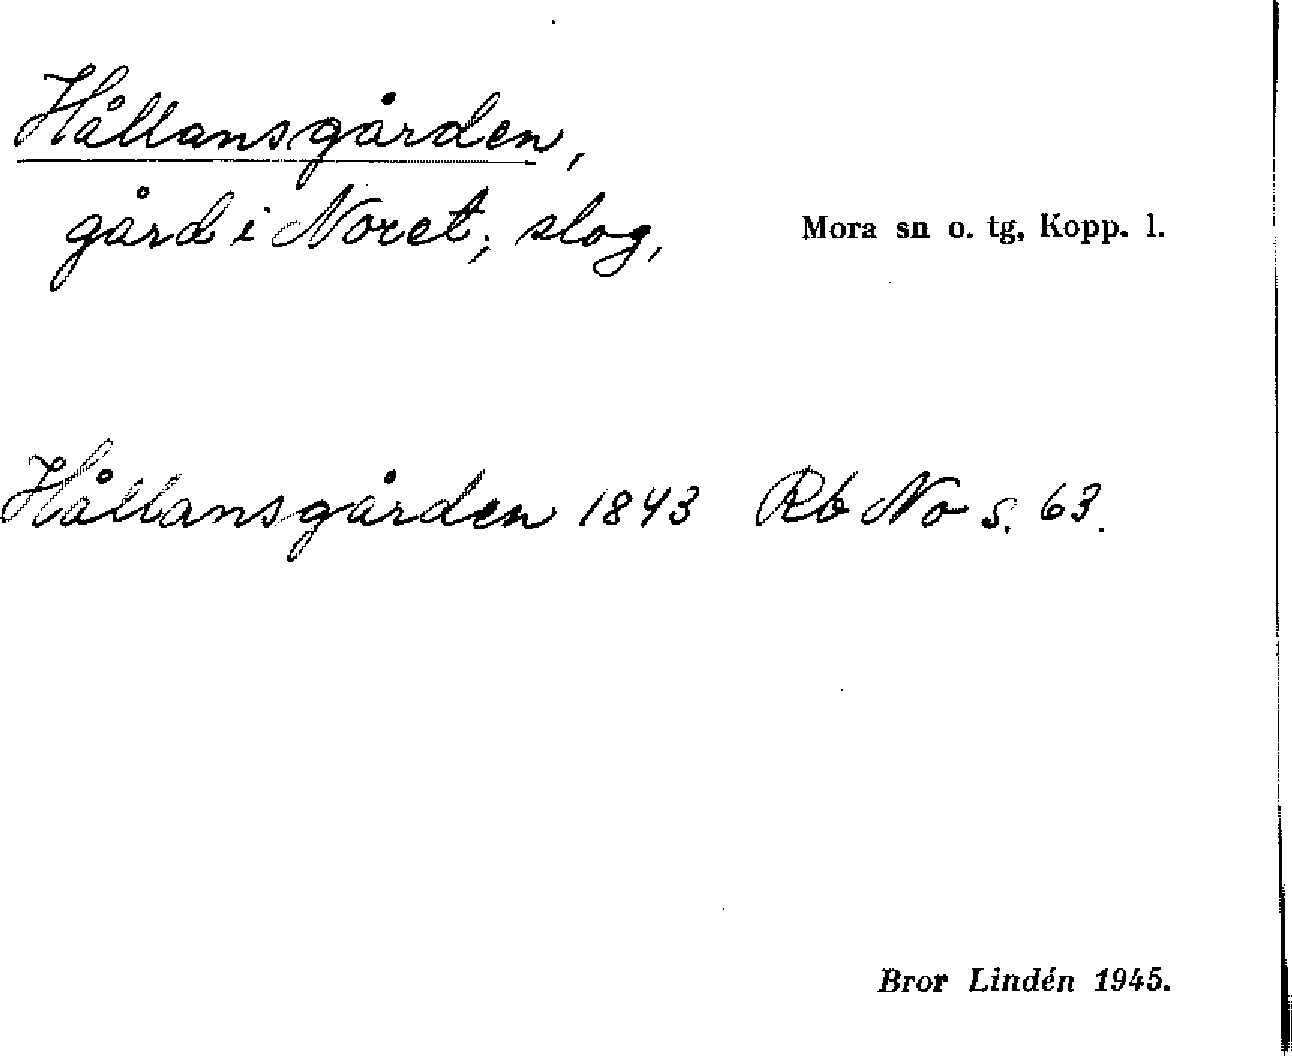 Hållansgården,
gård i Noret; slog, Mora sn o. tg, Kopp. l.
Hållansgården 1843 Rb No s. 63.
Bror Lindén 1945.